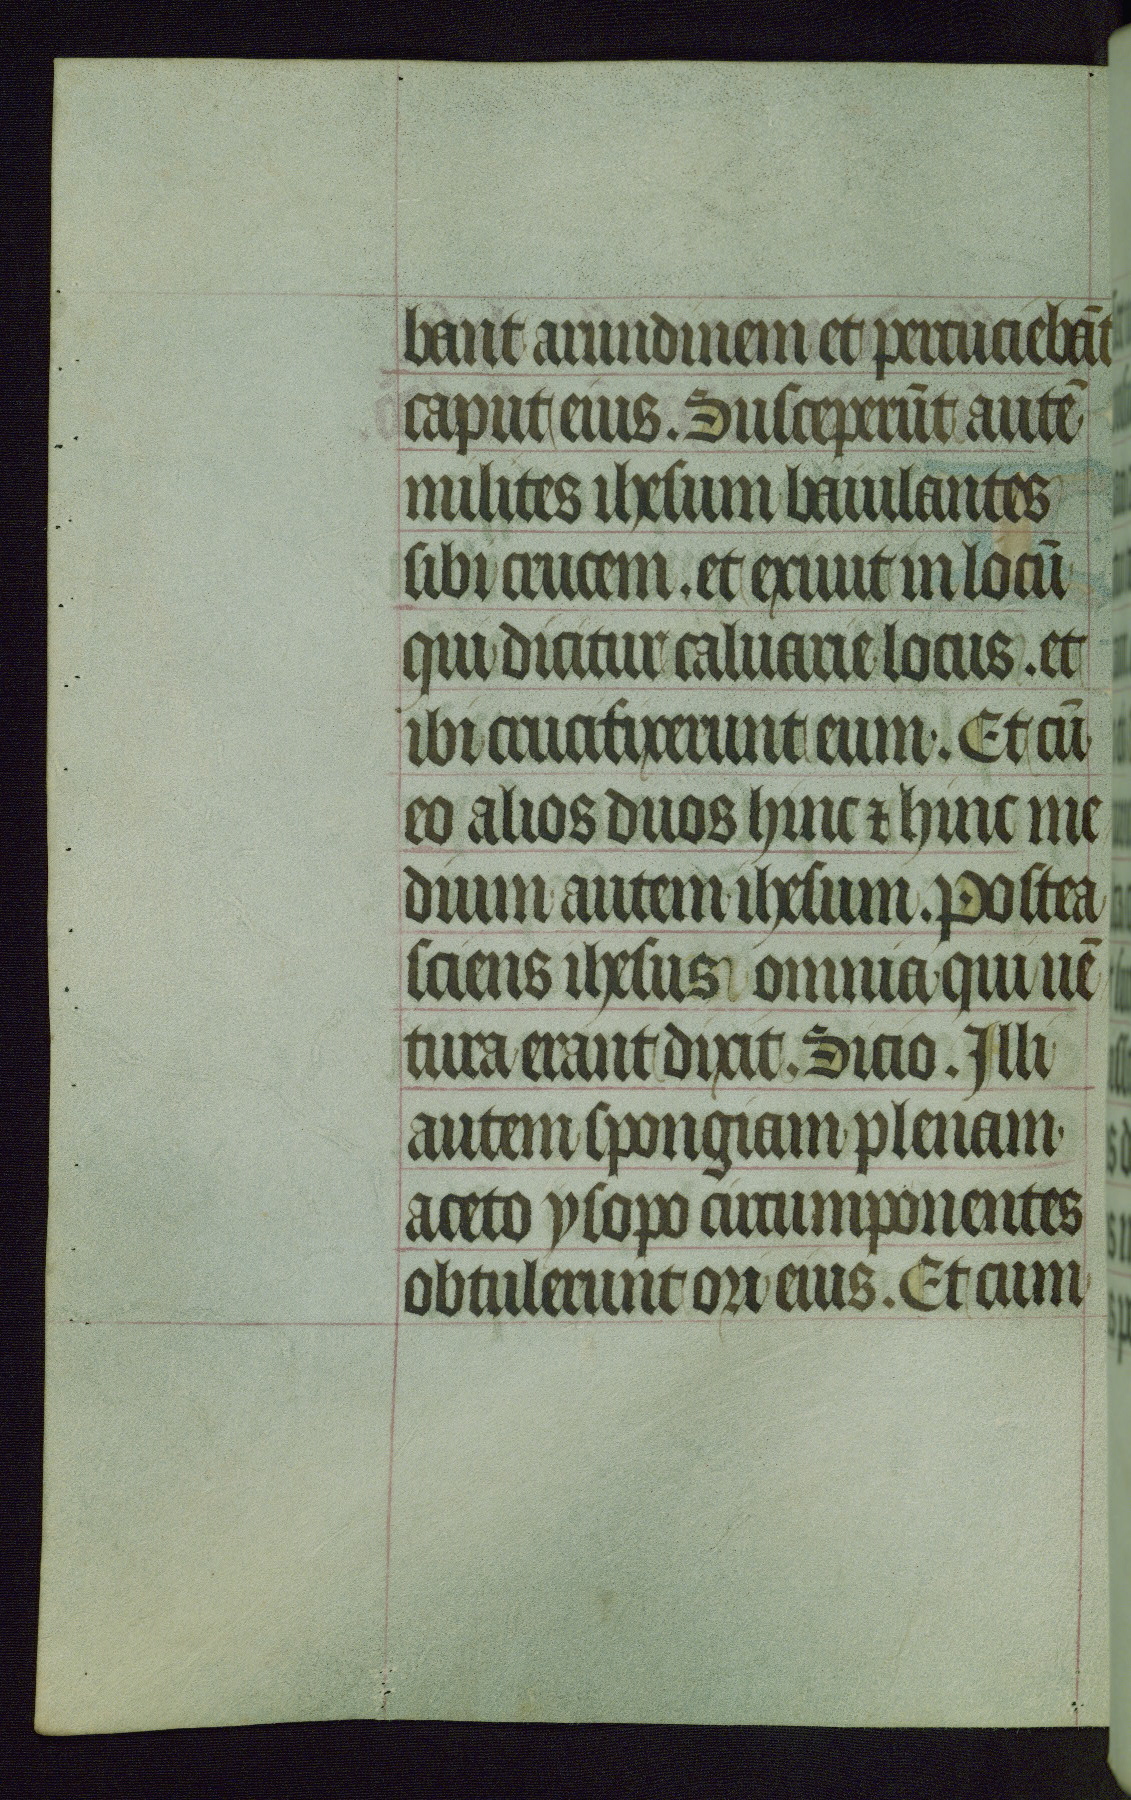 bant arundinem et percuciebāt
caput eius. Susceperūt autē
milites ihesum baiulantes
sibi crucem. et exiuit in locū
qui dicitur caluarie locus. et
ibi crucifixerunt eum. Et cū
eo alios duos hinc ⁊ hinc me
dium autem ihesum. Postea
sciens ihesus omnia qui uē
tura erant dixit. Sicio. Illi
autem spongiam plenam
aceto ysopo circumponentes
obtulerunt ori eius. Et cum